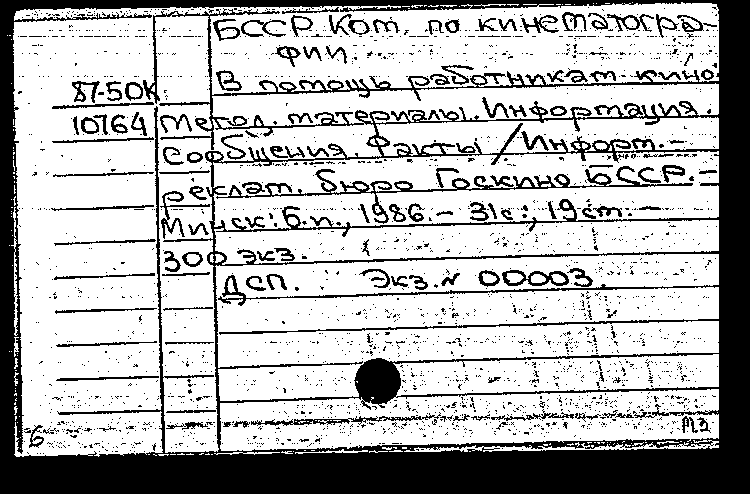 БССР. Ком. по кинематогра-
фии.
87-50К В помощь работникам кино:
10764 Метод. материалы. Информация.
Сообщения. Факты / Информ.-
реклам. бюро Госкино БССР.-
Минск: Б.и., 1986.- 31с.; 19см.-
300 экз.
ДСП. Экз.№ 00003.
6 МЗ